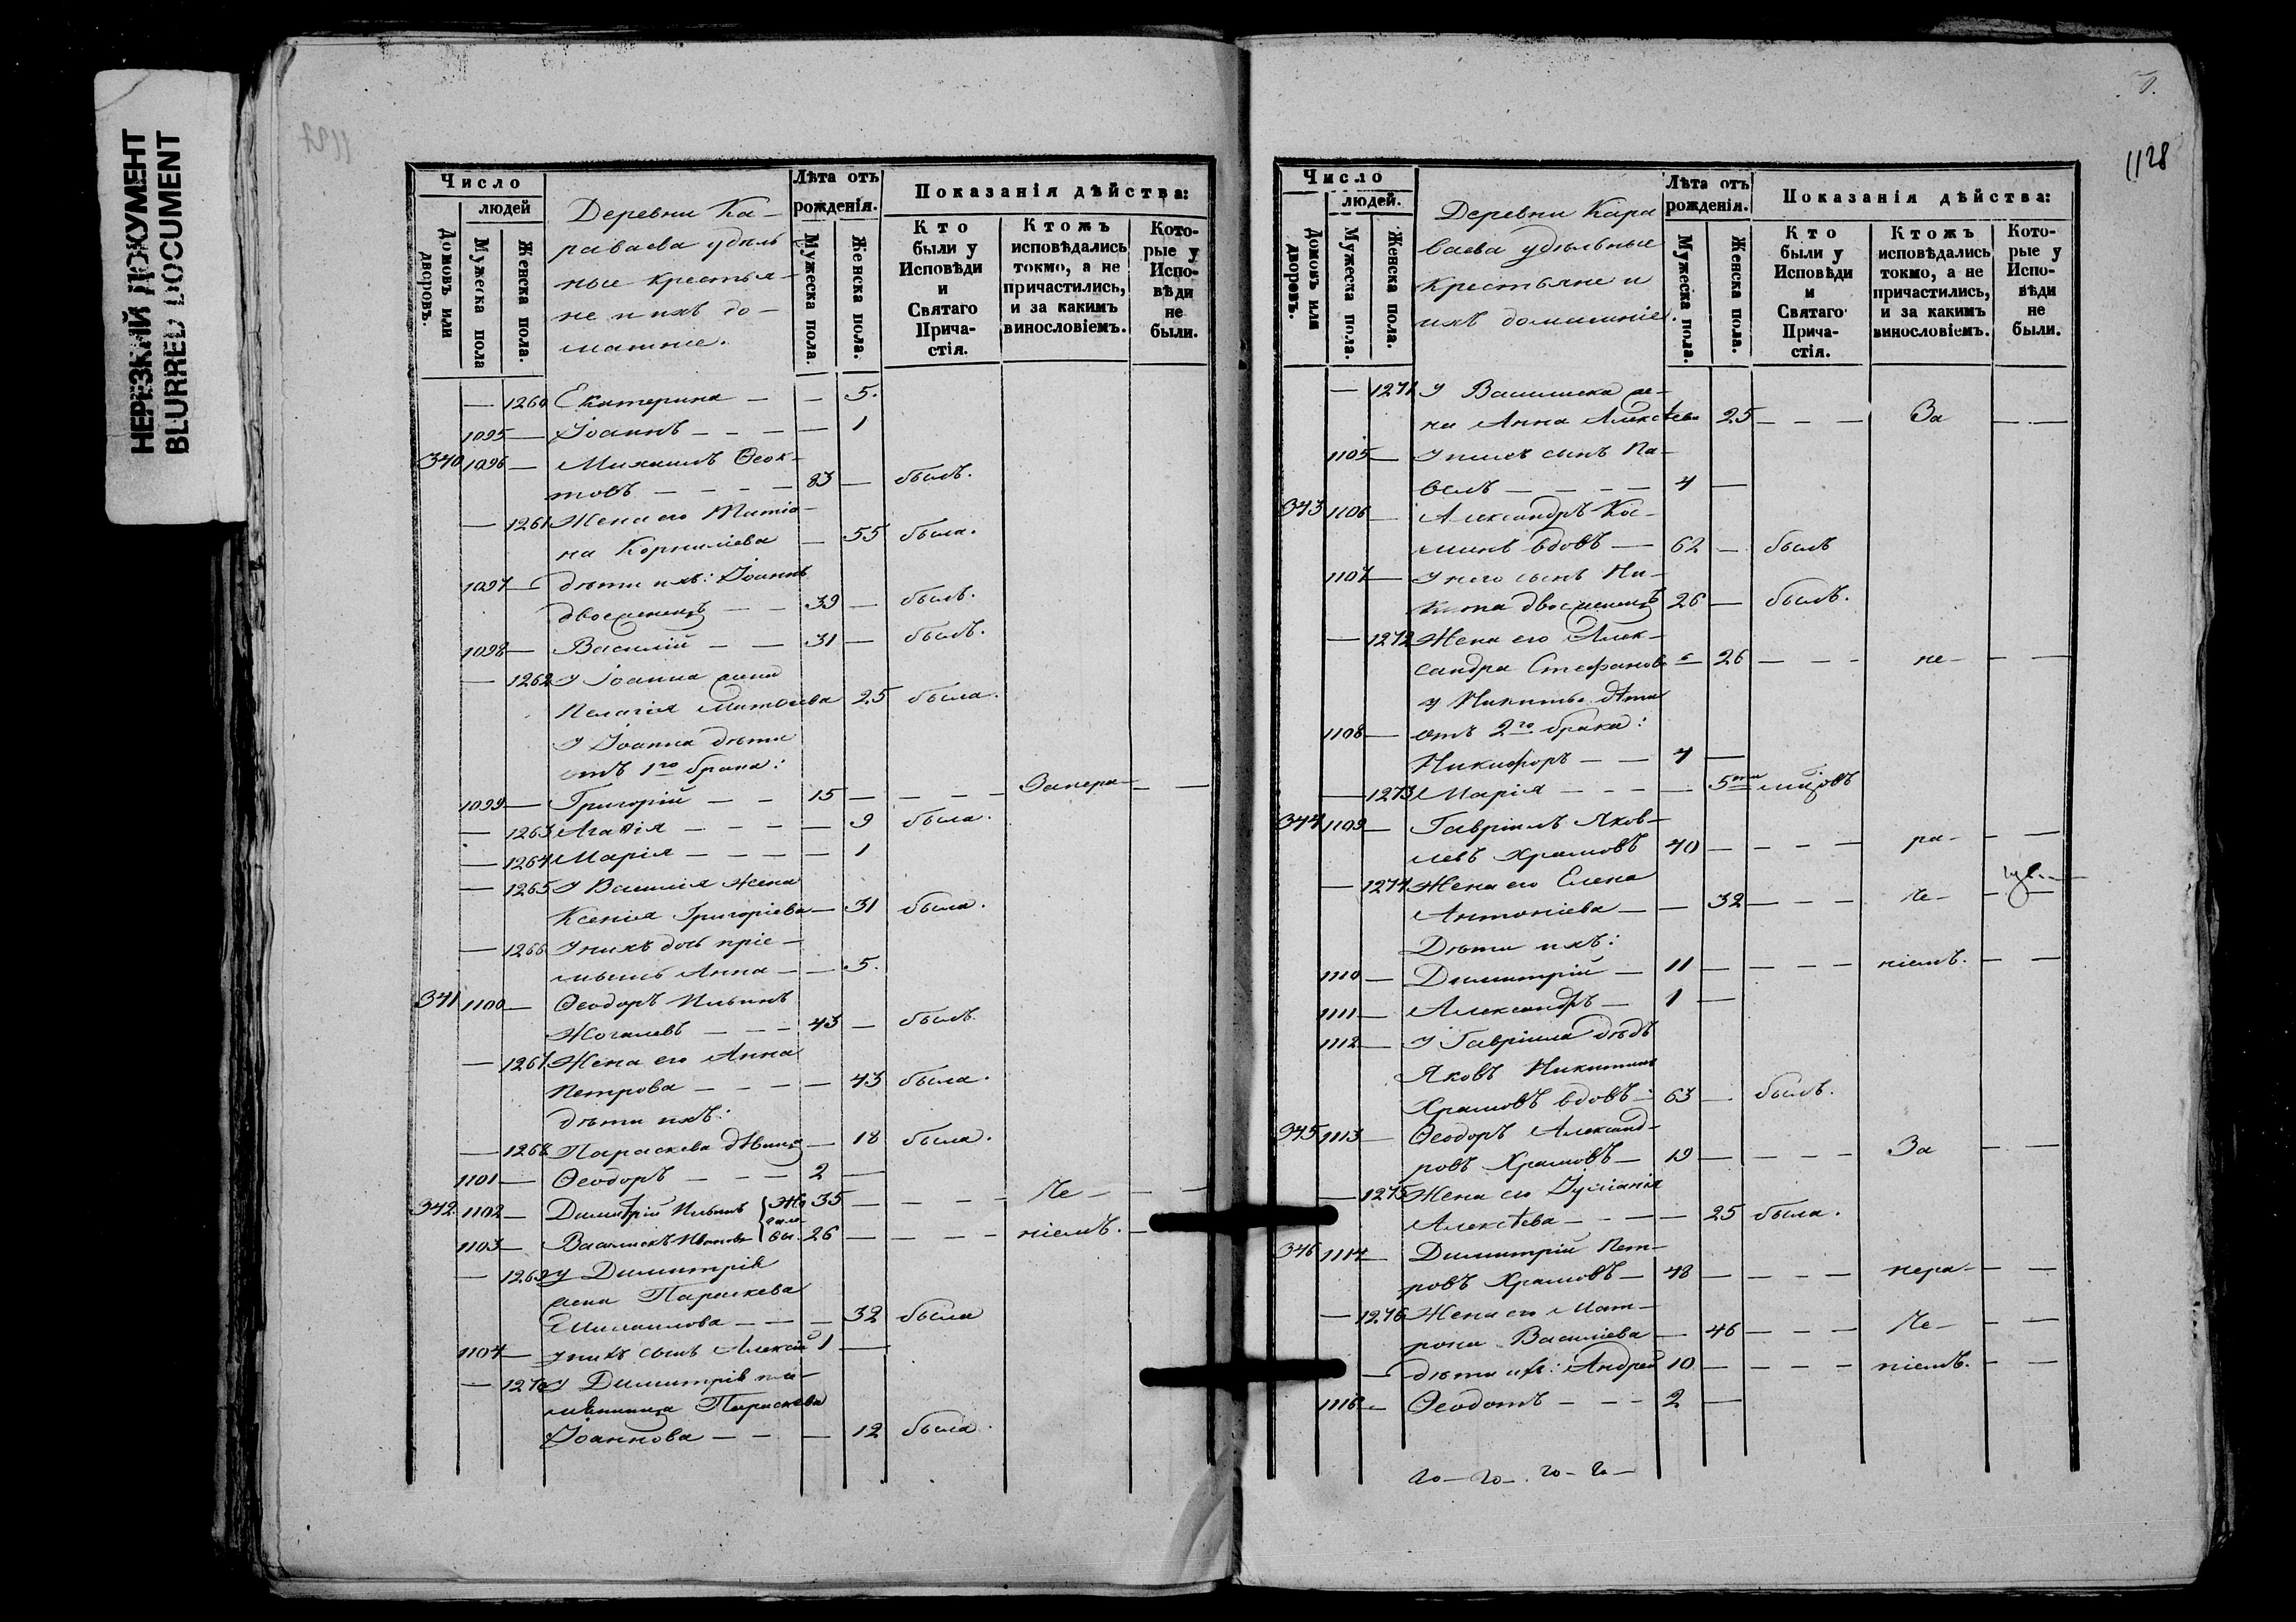 НЕРЕЗКИЙ ДОКУМЕНТ
BLURRED DOCUMENT
1127
Число
людей
Домовъ или дворовъ.
Мужеска пола
Женска пола.
Деревни Ка-
раваева удѣль
ные крестья-
не и ихъ до-
машніе.
Лѣта отъ
рожденія.
Мужеска пола.
Женска пола.
Показанія дѣйства:
Кто
были у
Исповѣди
и
Святаго
Прича-
стія.
Ктожъ
исповѣдались
токмо, а не
причастились,
и за какимъ
винословіемъ.
Кото-
рые у
Испо-
вѣди
не
были.
— 1260 Екатерина — — 5.
1095 — Іоаннъ — — — — 1
340 1096 — Михаилъ Ѳеок-
товъ — — — — 83 — былъ.
— 1261 Жена его
на Корниліева — 55 была.
1097 — дѣти ихъ: Іоаннъ
двоеженецъ — — 39 — былъ.
1098 — Василій — — 31 — былъ.
— 1262 У Іоанна жена
Пелагія Матѳіева 25 была.
У Іоанна дѣти
отъ 1го брака:
1099 — Григорій — — 15 — — — — Занера- — —
— 1263 Агаѳія — — — — 9 была.
— 1264 Марія — — — — 1
— 1265 У Василія жена
Ксенія Григоріева — 31 была.
— 1266 У нихъ дочь пріе-
мышъ Анна — — 5.
341 1100 — Ѳеодоръ Ильинъ
Жогалевъ — — — 43 — былъ.
— 1267 Жена его Анна
Петрова — — — — 43 была.
дѣти ихъ:
— 1268 Параскева дѣвица — 18 была.
1101 — Ѳеодоръ — — — 2 —
342. 1102 — Димитрій Ильинъ { Жо 35 — — — — Че — — —
гале-
1103 — Василискъ Ивановъ вы. 26 — — — — ніемъ. —
— 1269 У Димитрія
жена Параскева
— — — 32 была
1104 — у нихъ сынъ Алексій 1 —
— 1270 У Димитрія пле-
мянница Параскева
Іоаннова — — — 12 была.
1128
Число
людей.
Домовъ или дворовъ.
Мужеска пола.
Женска пола.
Деревни Кара
ваева удѣльные
крестьяне и
ихъ домашніе.
Лѣта отъ
рожденія.
Мужеска пола.
Женска пола.
Показанія дѣйства:
Кто
были у
Исповѣди
и
Святаго
Прича-
стія.
Ктожъ
исповѣдались
токмо, а не
причастились,
и за какимъ
винословіемъ.
Кото-
рые у
Испо-
вѣди
не
были.
— 1271 У Василиска же-
на Анна Алексѣева 25 — — — За — —
1105 — У нихъ сынъ Па-
велъ — — — — 4 —
343 1106 — Александръ Кос-
минъ вдовъ — 62 — былъ
1107 — У него сынъ Ни-
кита двоеженецъ 26 — былъ.
— 1272 Жена его Алек-
сандра Стефанова — 26 — — — не — — —
у Никиты дѣти
1108 — отъ 2го брака:
Никифоръ — — 4 —
— 1273 Марія — — — — 5ти мцовъ
344 1109 — Гавріилъ Яков-
левъ Храмовъ 40 — — — — ра- — —
— 1274 Жена его Елена
Антоніева — — 32 — — — Че- — —
Дѣти ихъ:
1110 — Димитрій — 11 — — — — ніемъ. — —
1111 — Александръ — 1 —
1112 — У Гавріила дѣдъ
Яковъ Никитинъ
Храмовъ вдовъ — 63 — былъ.
345 1113 — Ѳеодоръ Александ-
ровъ Храмовъ — 19 — — — — За — —
— 1275 Жена его Іуліанія
Алексѣева — — — — 25 была.
346 1114 — Димитрій Пет-
ровъ Храмовъ — 48 — — — — нера- — —
— 1276 Жена его Мат-
рона Василіева — 46 — — — Че- — —
— дѣти ихъ: Андрей 10 — — — — ніемъ. — —
1116 — Ѳеодотъ — — — 2 —